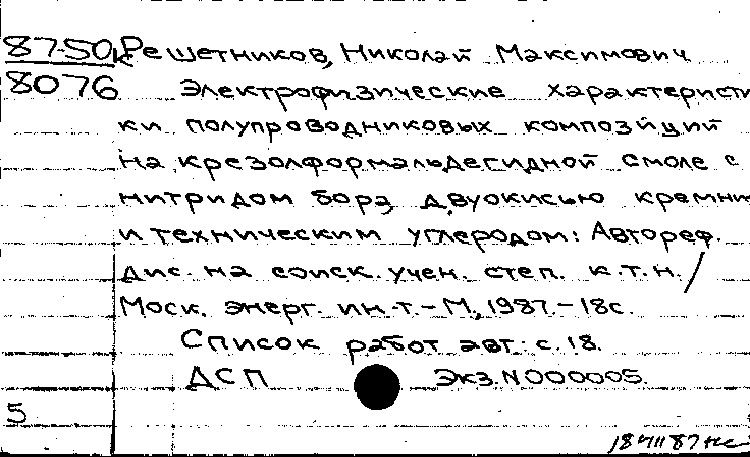 87-50к Решетников, Николай Максимович
8076 Электрофизические характеристи
ки полупроводниковых композиций
на крезолформальдегидной смоле с
нитридом бора, двуокисью кремни
и техническим углеродом: Автореф.
дис. на соиск. учен. степ. к.т.н./
Моск. энерг. ин-т.-М., 1987.-18с.
Список работ авт.: с. 18.
ДСП Экз. N000005.
5